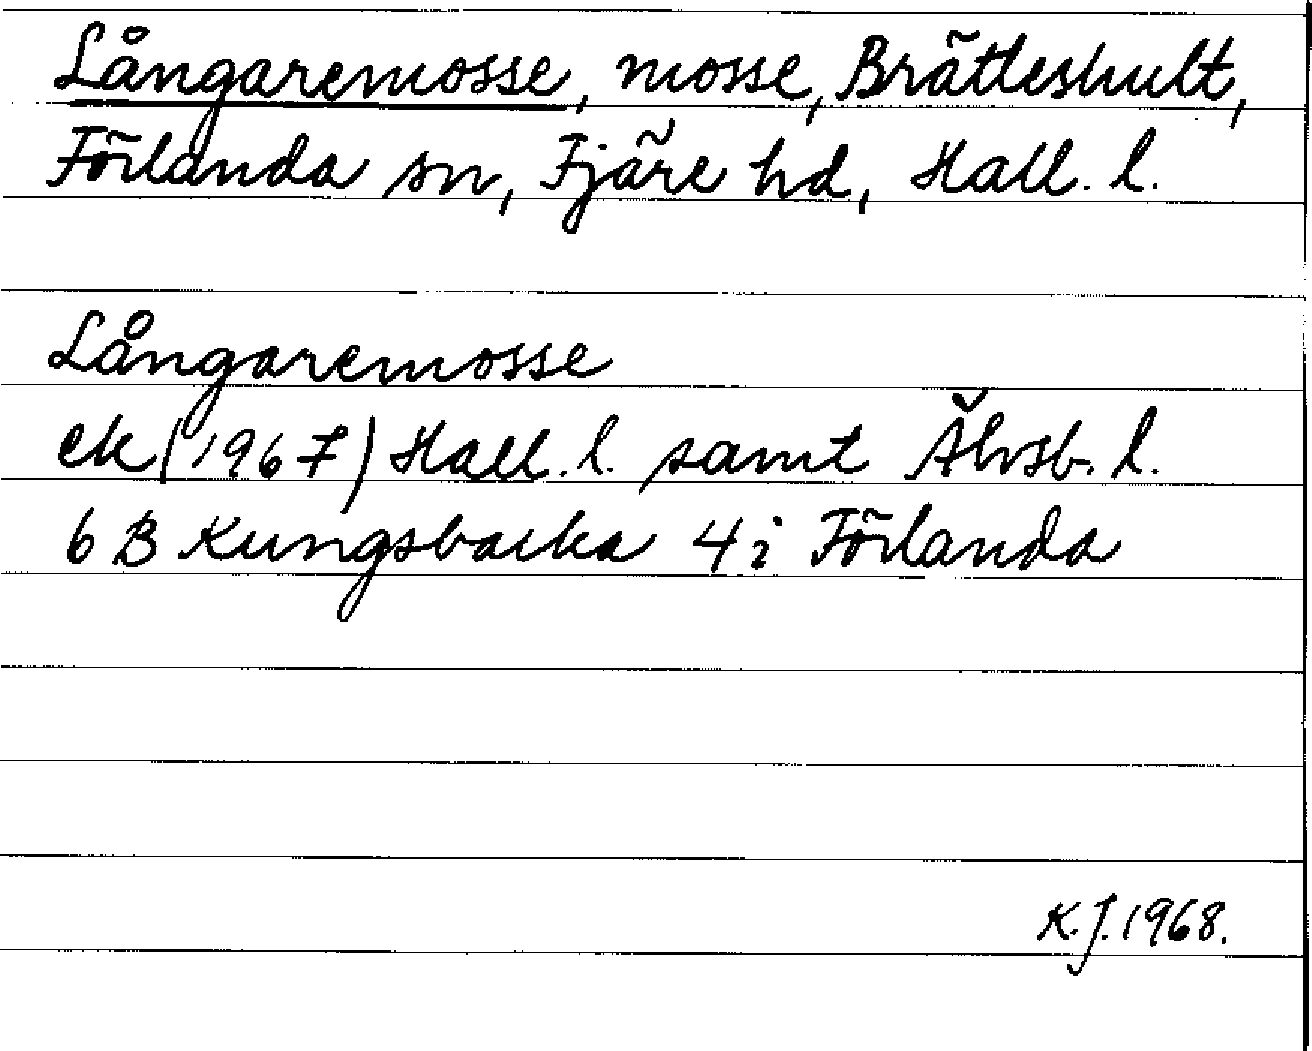 Långaremosse, mosse, Brättleshult,
Förlanda sn, Fjäre hd, Hall. l.
Långaremosse
ek (1967) Hall. l. samt Älvsb. l.
6 B Kungsbacka 4 i Förlanda
K. J. 1968.